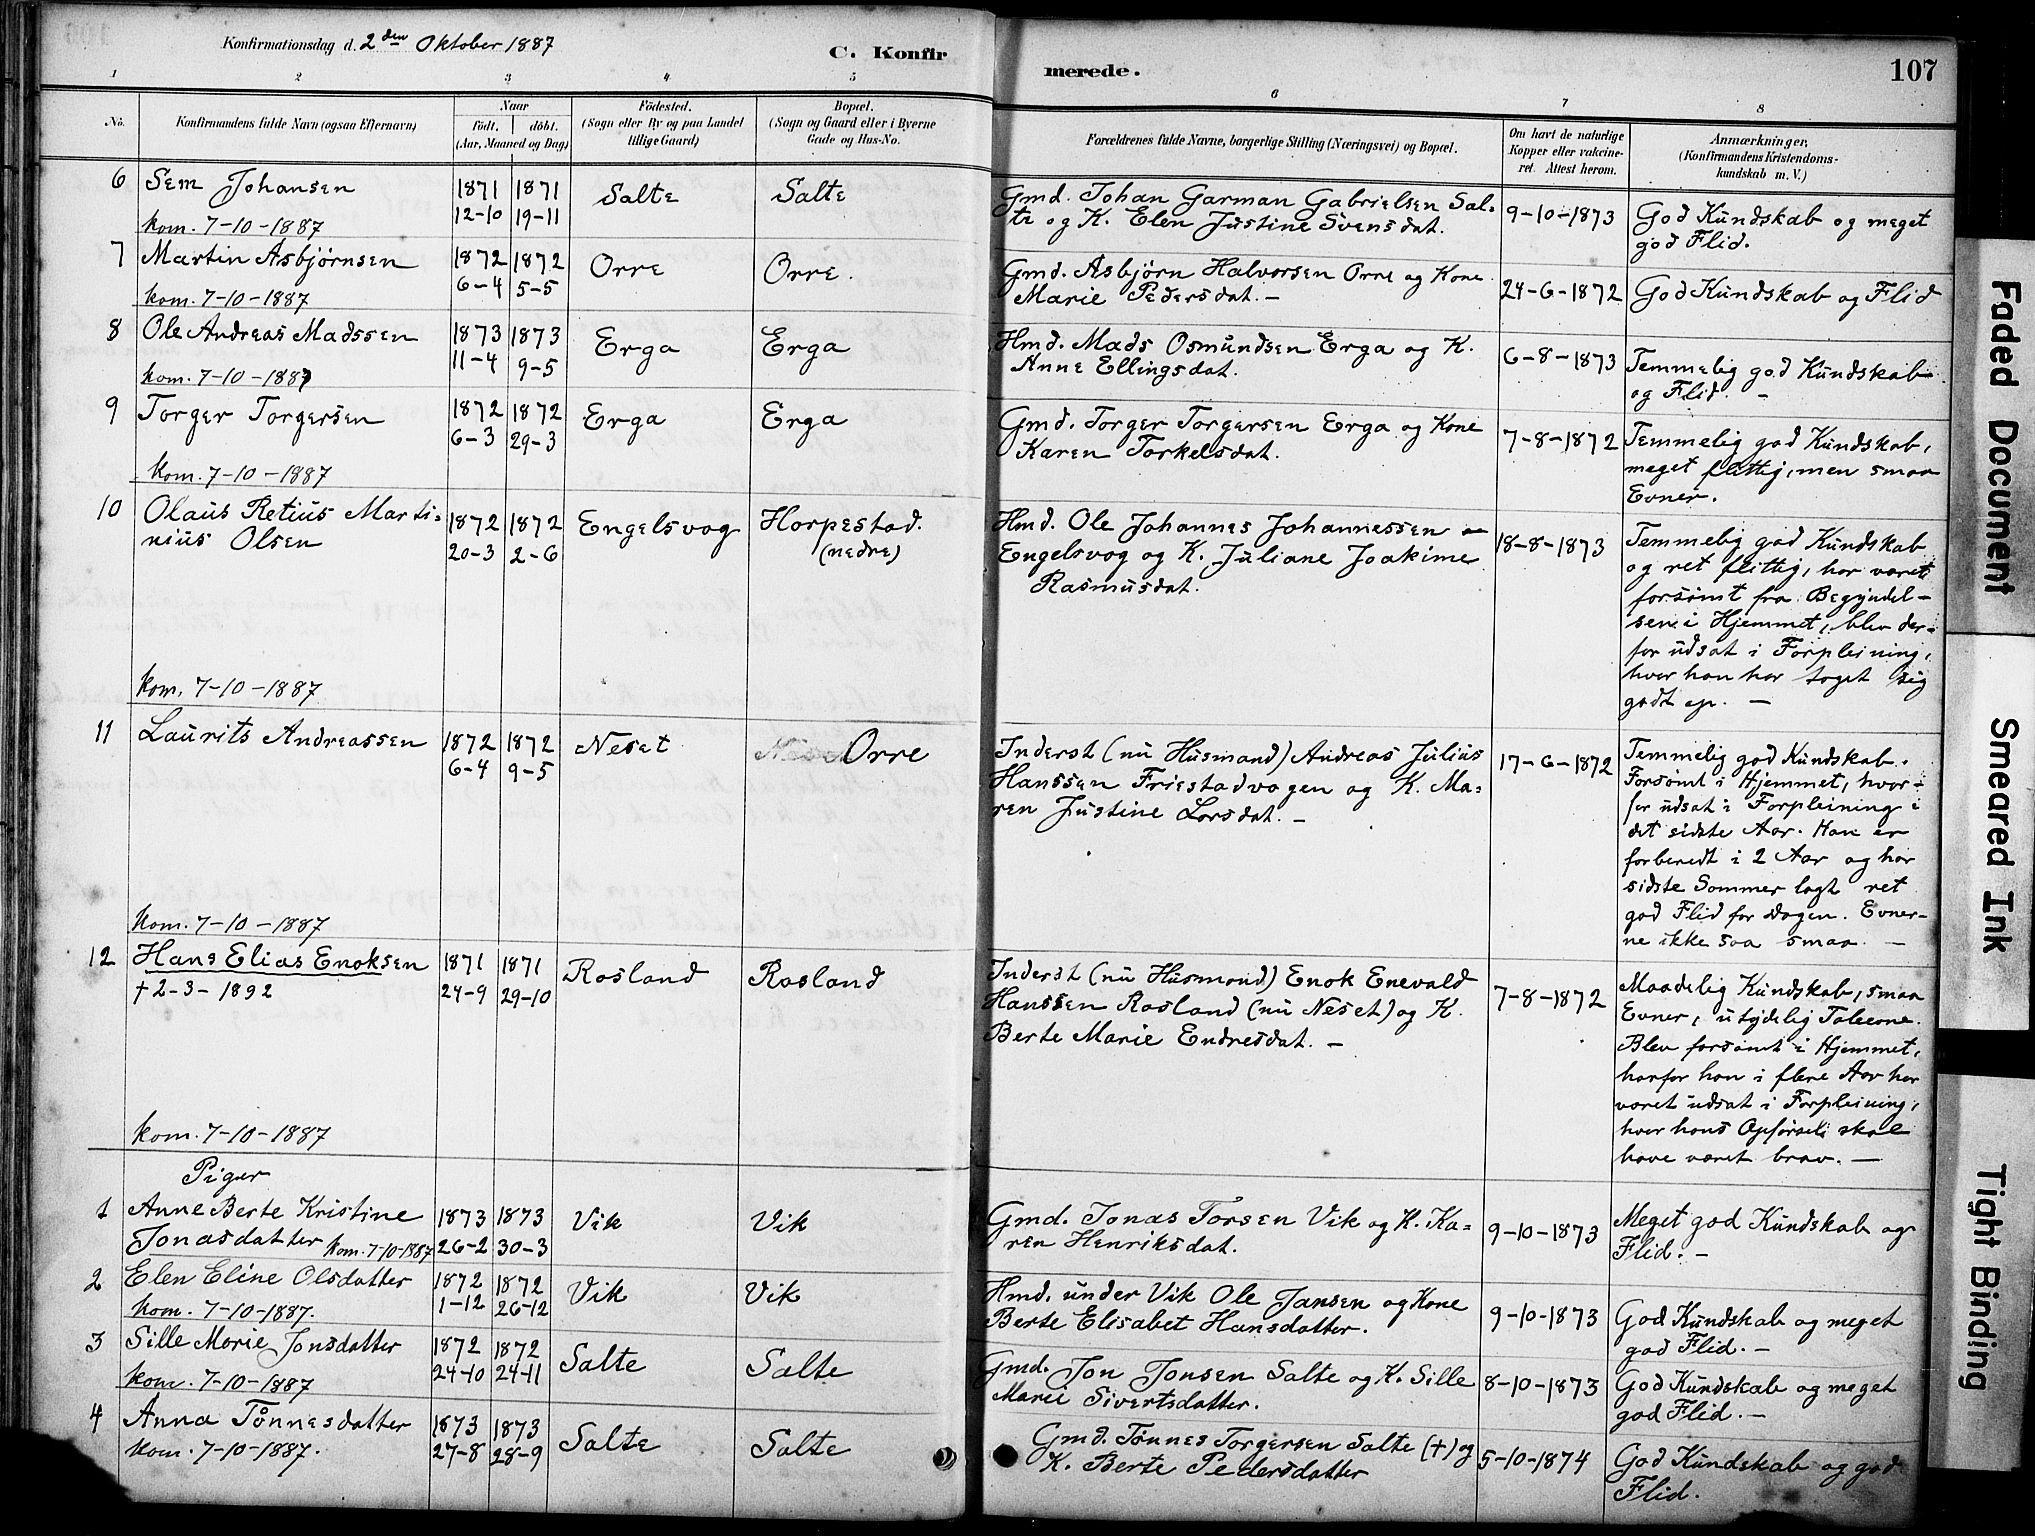 Konfirmationsdag d. 2den Oktober 1887
C. Konfirmerede.
107
1 2 3 4 5 6 7 8
No.
Konfirmandens fulde Navn (ogsaa Efternavn)
Naar
födt. döbt.
(Aar, Maaned og Dag)
Födested.
(Sogn eller By og paa Landet
tillige Gaard)
Bopæl.
(Sogn og Gaard eller i Byerne
Gade og Hus-No.
Forældrenes fulde Navne, borgerlige Stilling (Næringsvei) og Bopæl.
Om havt de naturlige
Kopper eller vakcine-
ret. Attest herom.
Anmærkninger,
(Konfirmandens Kristendoms-
kundskab m. V.)
6 Sem Johansen
kom. 7-10-1887
1871 1871
12-10 19-11
Salte
Salte
Gmd. Johan Garman Gabrielsen Sal-
te og K. Elen Justine Svensdat.
9-10-1873
God Kundskab og meget
god Flid.
7 Martin Asbjørnsen
kom. 7-10-1887
1872 1872
6-4 5-5
Orre
Orre.
Gmd. Asbjørn Halvorsen Orre og Kone
Marie Pedersdat. —
24-6-1872
God Kundskab og Flid
8 Ole Andreas Madssen
kom. 7-10-1887
1873 1873
11-4 9-5
Erga
Erga
Hmd. Mads Osmundsen Erga og K.
Anne Ellingsdat.
6-8-1873
Temmelig god Kundskab
og Flid. —
9 Torger Torgersen
kom. 7-10-1887
1872 1872
6-3 29-3
Erga
Erga
Gmd. Torger Torgersen Erga og Kone
Karen Torkelsdat.
7-8-1872
Temmelig god Kundskab,
meget flittig, men smaa
Evner.
10 Olaus Retius Marti-
nius Olsen
kom. 7-10-1887
1872 1872
20-3 2-6
Engelsvog
Horpestad.
(nedre)
Hmd. Ole Johannes Johannessen
Engelsvog og K. Juliane Joakime
Rasmusdat.
18-8-1873
Temmelig god Kundskab
og ret flittig, har været
forsømt fra Begyndel-
sen i Hjemmet, blev der-
for udsat i Forpleining,
hvor han har taget sig
godt op. —
11 Laurits Andreassen
kom. 7-10-1887
1872 1872
6-4 9-5
Neset
Orre
Inderst (nu Husmand) Andreas Julius
Hanssen Friestadvagen og K. Ma-
ren Justine Larsdat. —
17-6-1872
Temmelig god Kundskab.
Forsømt i Hjemmet, hvor-
for udsat i Forpleining i
det sidste Aar. Han er
forberedt i 2 Aar og har
sidste Sommer lagt ret
god Flid for Dagen. Evner-
ne ikke saa smaa. —
12 Hans Elias Enoksen
† 2-3-1892
kom. 7-10-1887
1871 1871
24-9 29-10
Rosland
Rosland
Inderst (nu Husmand) Enok Enevald
Hanssen Rosland (nu Neset) og K.
Berte Marie Endresdat. —
7-8-1872
Maadelig Kundskab, smaa
Evner, utydelig Taleevne.
Blev forsømt i Hjemmet,
hvorfor han i flere Aar har
været udsat i Forpleining,
hvor hans Opførsel skal
have været brav. —
Piger
1 Anne Berte Kristine
Jonasdatter kom. 7-10-1887
1873 1873
26-2 30-3
Vik
Vik
Gmd. Jonas Torsen Vik og K. Ka-
ren Henriksdat.
9-10-1873
Meget god Kundskab og
Flid. —
2 Elen Eline Olsdatter
kom. 7-10-1887.
1872 1872
1-12 26-12
Vik
Vik
Hmd. under Vik Ole Jansen og Kone
Berte Elisabet Hansdatter.
9-10-1873
God Kundskab og meget
god Flid. —
3 Sille Marie Jonsdatter
kom. 7-10-1887
1872 1872
24-10 24-11
Salte
Salte
Gmd. Jon Jonsen Salte og K. Sille
Marie Sivertsdatter.
8-10-1873
God Kundskab og meget
god Flid. —
4 Anna Tønnesdatter
kom. 7-10-1887.
1873 1873
27-8 28-9
Salte
Salte
Gmd. Tønnes Torgersen Salte (†) og
K. Berte Pedersdatter
5-10-1874
God Kundskab og god
Flid.
Faded Document
Smeared Ink
Tight Binding